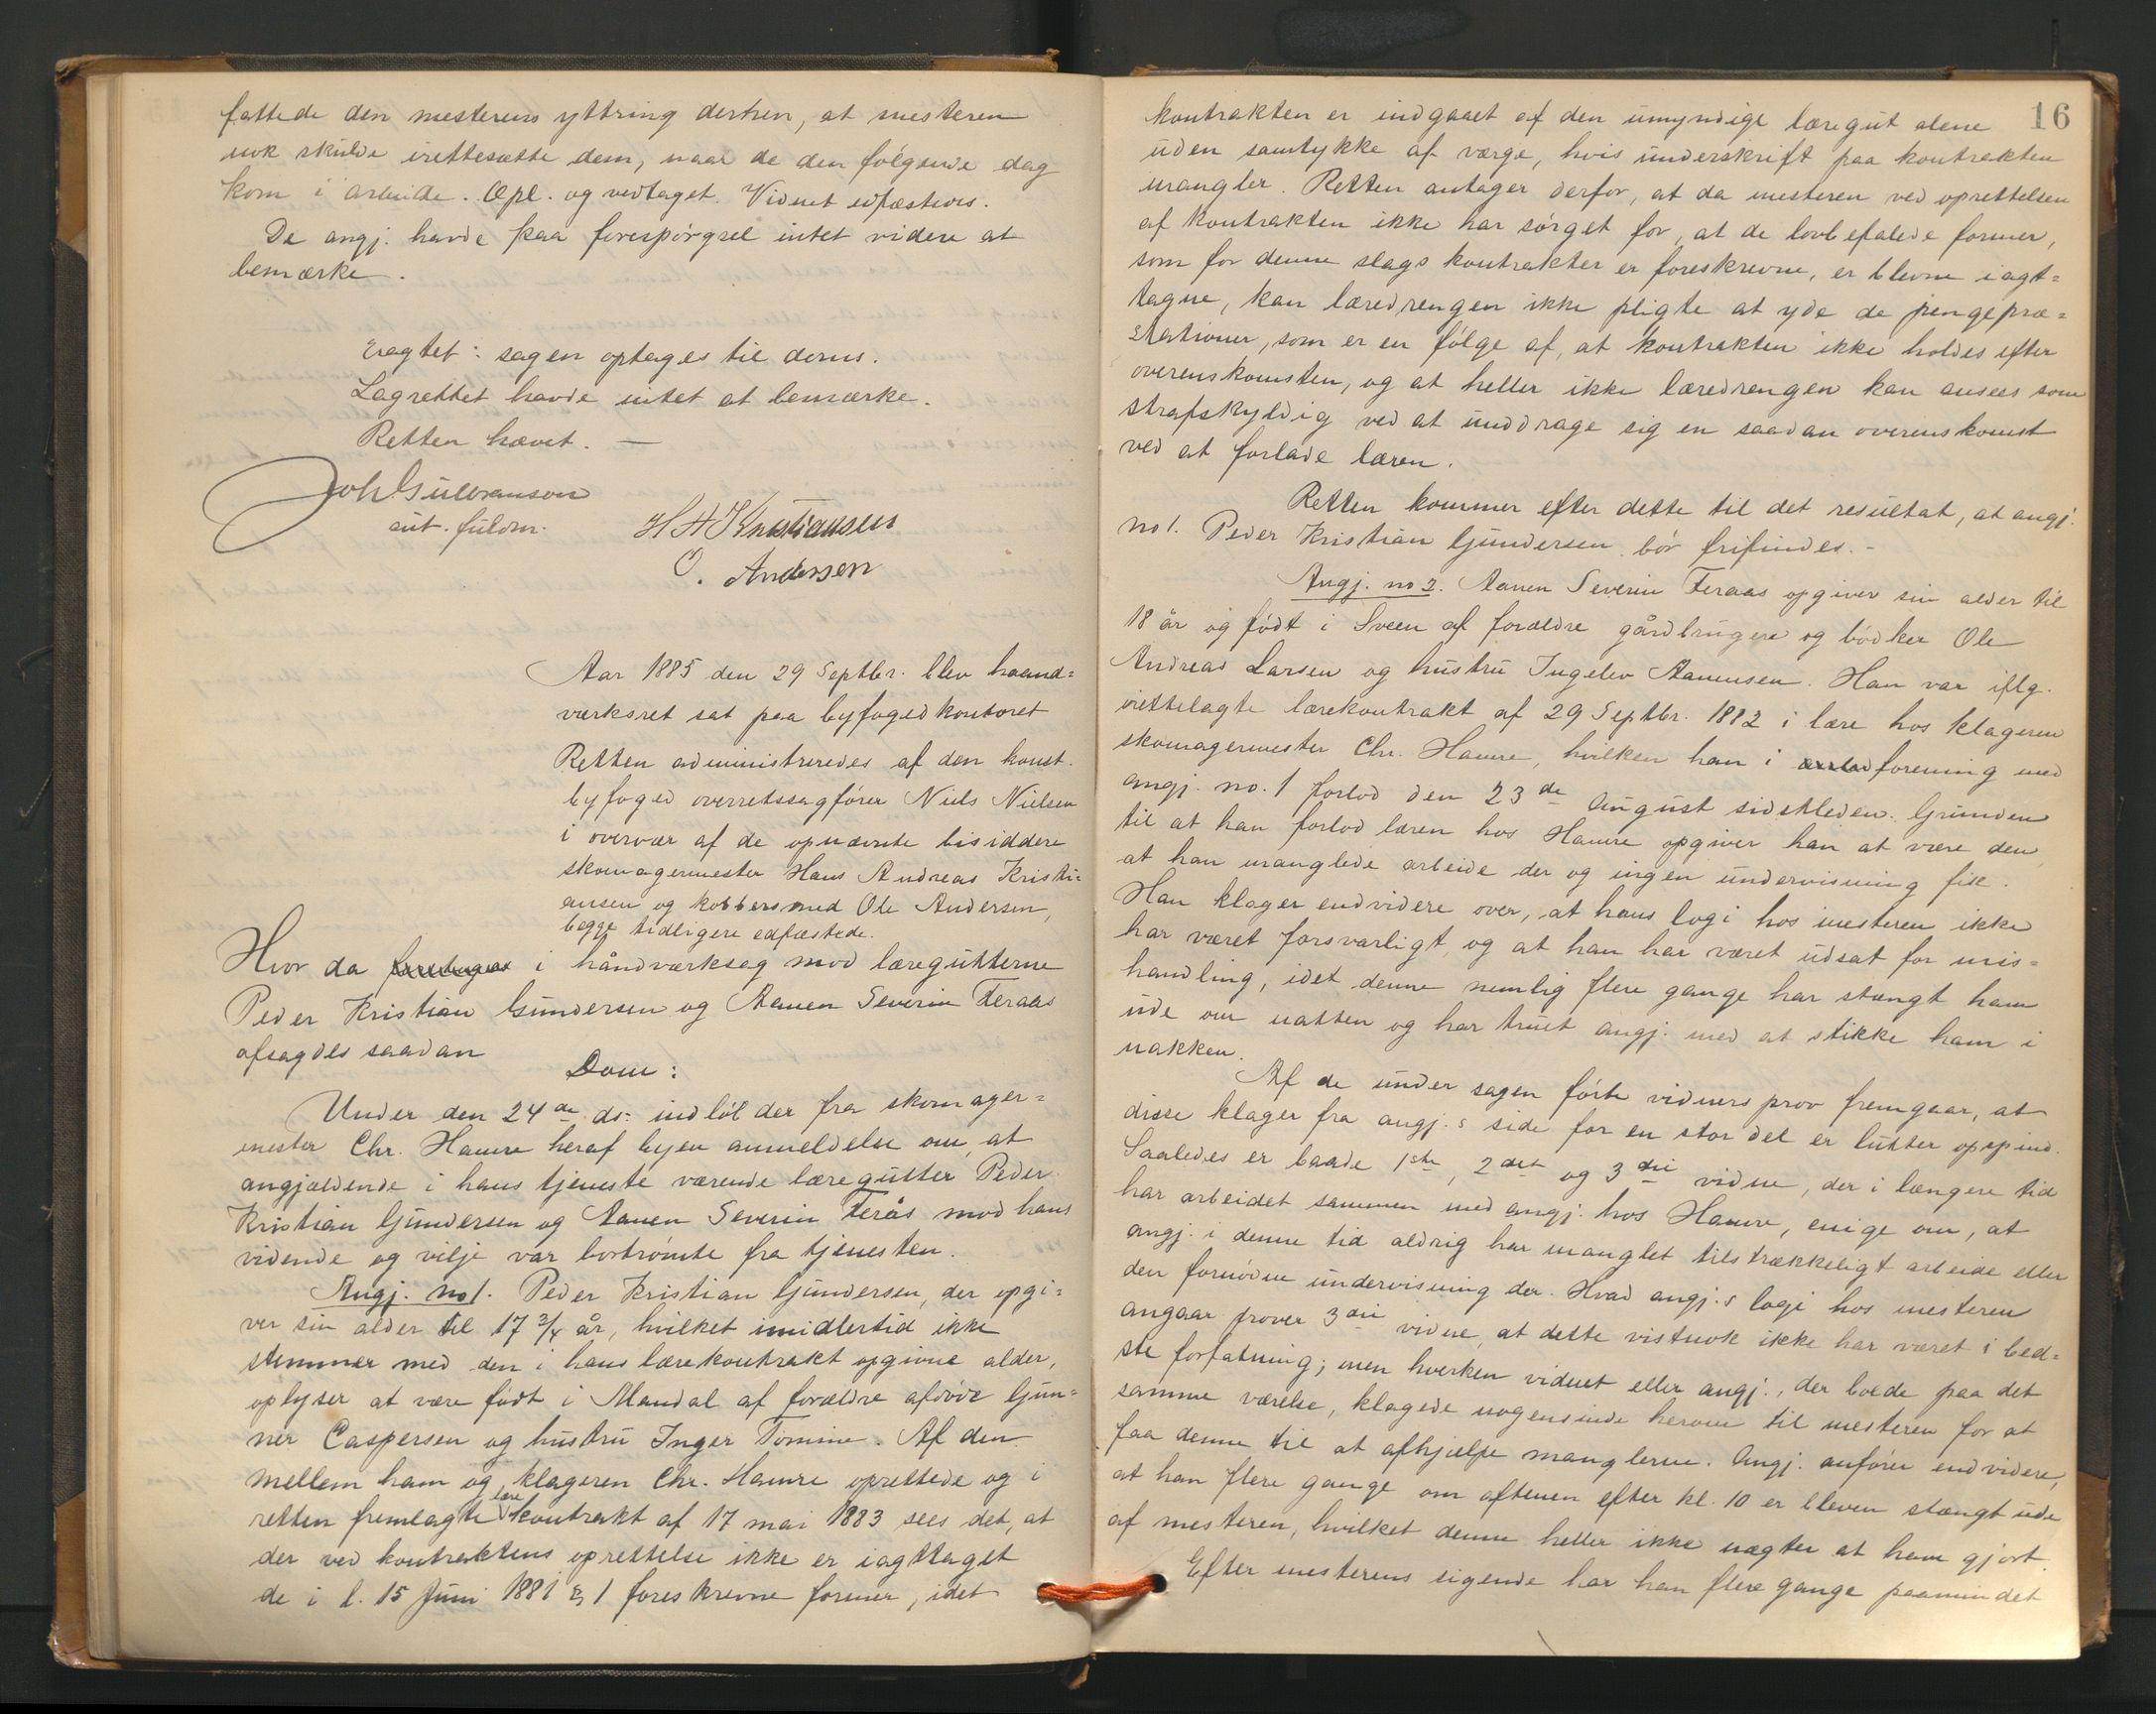 fattede den mesterens yttring derhen, at mesteren
nok skulde irettesætte dem, naar de den følgende dag
kom i arbeide. Opl. og vedtaget. Vidnet edfæstedes.
De angj. havde paa forespørgsel intet videre at
bemærke.
Eragtet: sagen optages til doms.
Lagrettet havde intet at bemærke.
Retten hævet. —
Joh. Gulbranson
aut. fuldm.
H A Kristiansen
O. Andersen
Aar 1885 den 29 Septbr. blev haand=
værksret sat paa byfogedkontoret
Retten administreredes af den konst.
byfoged overretssagfører Niels Nielsen
i overvær af de opnævnte bisiddere
skomagermester Hans Andreas Kristi=
ansen og kobbersmed Ole Andersen,
begge tidligere edfæstede.
Hvor da foretoges i håndværksag mod læregutterne
Peder Kristian Gundersen og Aanen Severin Feraas
afsagdes saadan
Dom:
Under den 24de ds: indløb der fra skomager=
mester Chr. Hamre heraf byen anmeldelse om, at
angjældende i hans tjeneste værende læregutter Peder
Kristian Gundersen og Aanen Severin Ferås mod hans
vidende og vilje var bortrømte fra tjenesten.
Angj. no 1. Peder Kristian Gundersen, der opgi=
ver sin alder til 17 3/4 år, hvilket imidlertid ikke
stemmer med den i hans lærekontrakt opgivne alder,
oplyser at være født i Mandal af forældre afdøde Gun=
ner Caspersen og hustru Inger Tomine. Af den
mellem ham og klageren Chr. Hamre oprettede og i
retten fremlagte lærekontrakt af 17 mai 1883 sees det, at
der ved kontraktens oprettelse ikke er iagttaget
de i l. 15 Juni 1881 § 1 foreskrevne former, idet
16
kontrakten er indgaaet af den umyndige læregut alene
uden samtykke af værge, hvis underskrift paa kontrakten
mangler. Retten antager derfor, at da mesteren ved oprettelsen
af kontrakten ikke har sørget for, at de lovbefalede former,
som for denne slags kontrakter er foreskrevne, er blevne iagt=
tagne, kan læredrengen ikke pligte at yde de pengepræ=
stationer, som er en følge af, at kontrakten ikke holdes efter
overenskomsten, og at heller ikke læredrengen kan ansees som
strafskyldig ved at unddrage sig en saadan overenskomst
ved at forlade læren.
Retten kommer efter dette til det resultat, at angj.
no 1. Peder Kristian Gundersen bør frifindes. -
Angj. no 2. Aanen Severin Feraas opgiver sin alder til
18 år og født i Sveen af forældre gårdbruger og bødker Ole
Andreas Larsen og hustru Ingelev Aanensen. Han var iflg.
irettelagte lærekontrakt af 29 Septbr. 1882 i lære hos klageren
skomagermester Chr. Hamre, hvilken han i forening med
angj. no. 1 forlod den 23de August sidstleden. Grunden
til at han forlod læren hos Hamre opgiver han at være den,
at han manglede arbeide der og ingen undervisning fik.
Han klager endvidere over, at hans logi hos mesteren ikke
har været forsvarligt, og at han har været udsat for mis=
handling, idet denne nemlig flere gange har stængt ham
ude om natten og har truet angj. med at stikke ham i
nakken.
Af de under sagen førte vidners prov fremgaar, at
disse klager fra angj.s side for en stor del er lutter opspind.
Saaledes er baade 1ste, 2det og 3die vidne, der i længere tid
har arbeidet sammen med angj. hos Hamre, enige om, at
angj. i denne tid aldrig har manglet tilstrækkeligt arbeide eller
den fornødne undervisning der. Hvad angj.s logi hos mesteren
angaar prover 3die vidne, at dette vistnok ikke har været i bed=
ste forfatning; men hverken vidnet eller angj., der boede paa det
samme værelse, klagede nogensinde herom til mesteren for at
faa denne til at afhjælpe manglerne. Angj. anfører endvidere,
at han flere gange om aftenen efter kl. 10 er bleven stængt ude
af mesteren, hvilket denne heller ikke nægter at have gjort.
Efter mesterens sigende har han flere gange paamindet